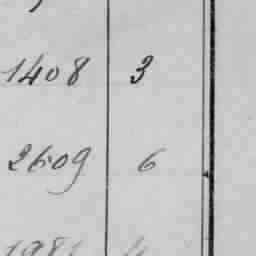 1408 3
2609 6